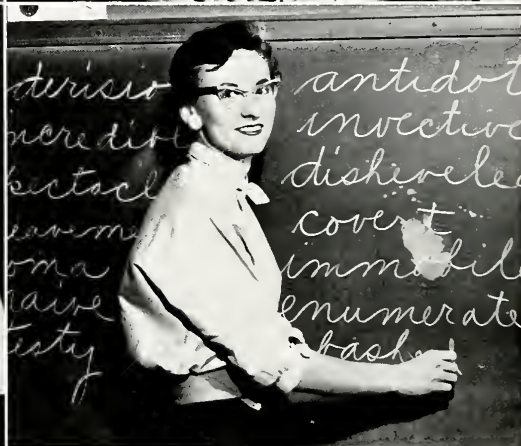 derisio
ncredib
pectacl
eaveme
oma
naive
testy
antidot
invective
dishevele
covert
immobil
enumerate
bash